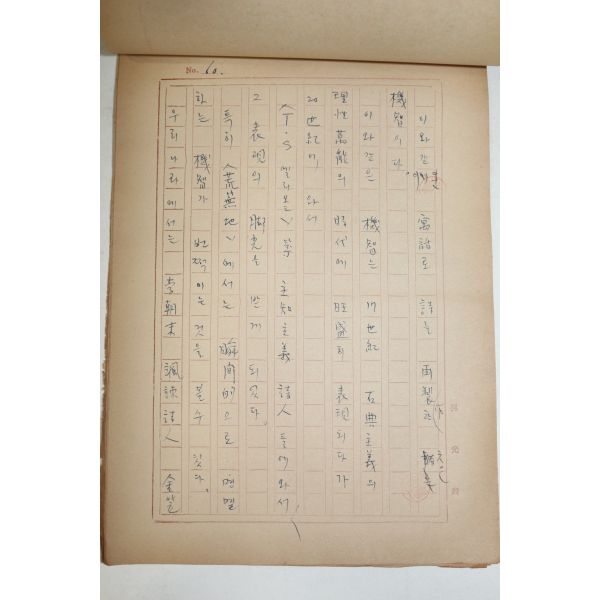 No. 60.
이와 같은 寓話로 詩를
機智이다.
이와 같은 機智는 17世紀 古典主義의
理性萬能의 時代에 旺盛히 表現되다가
20世紀에 와서
〈T·S 엘리옽〉等 主知主義 詩人들에 와서
그 表現의 脚光을 받게 되었다.
특히 〈荒蕪地〉에서는 瞬間的으로
하는 機智가 번쩍이는 것을 볼 수 있다.
우리나라에서는 李朝末 諷諫詩人 金삿